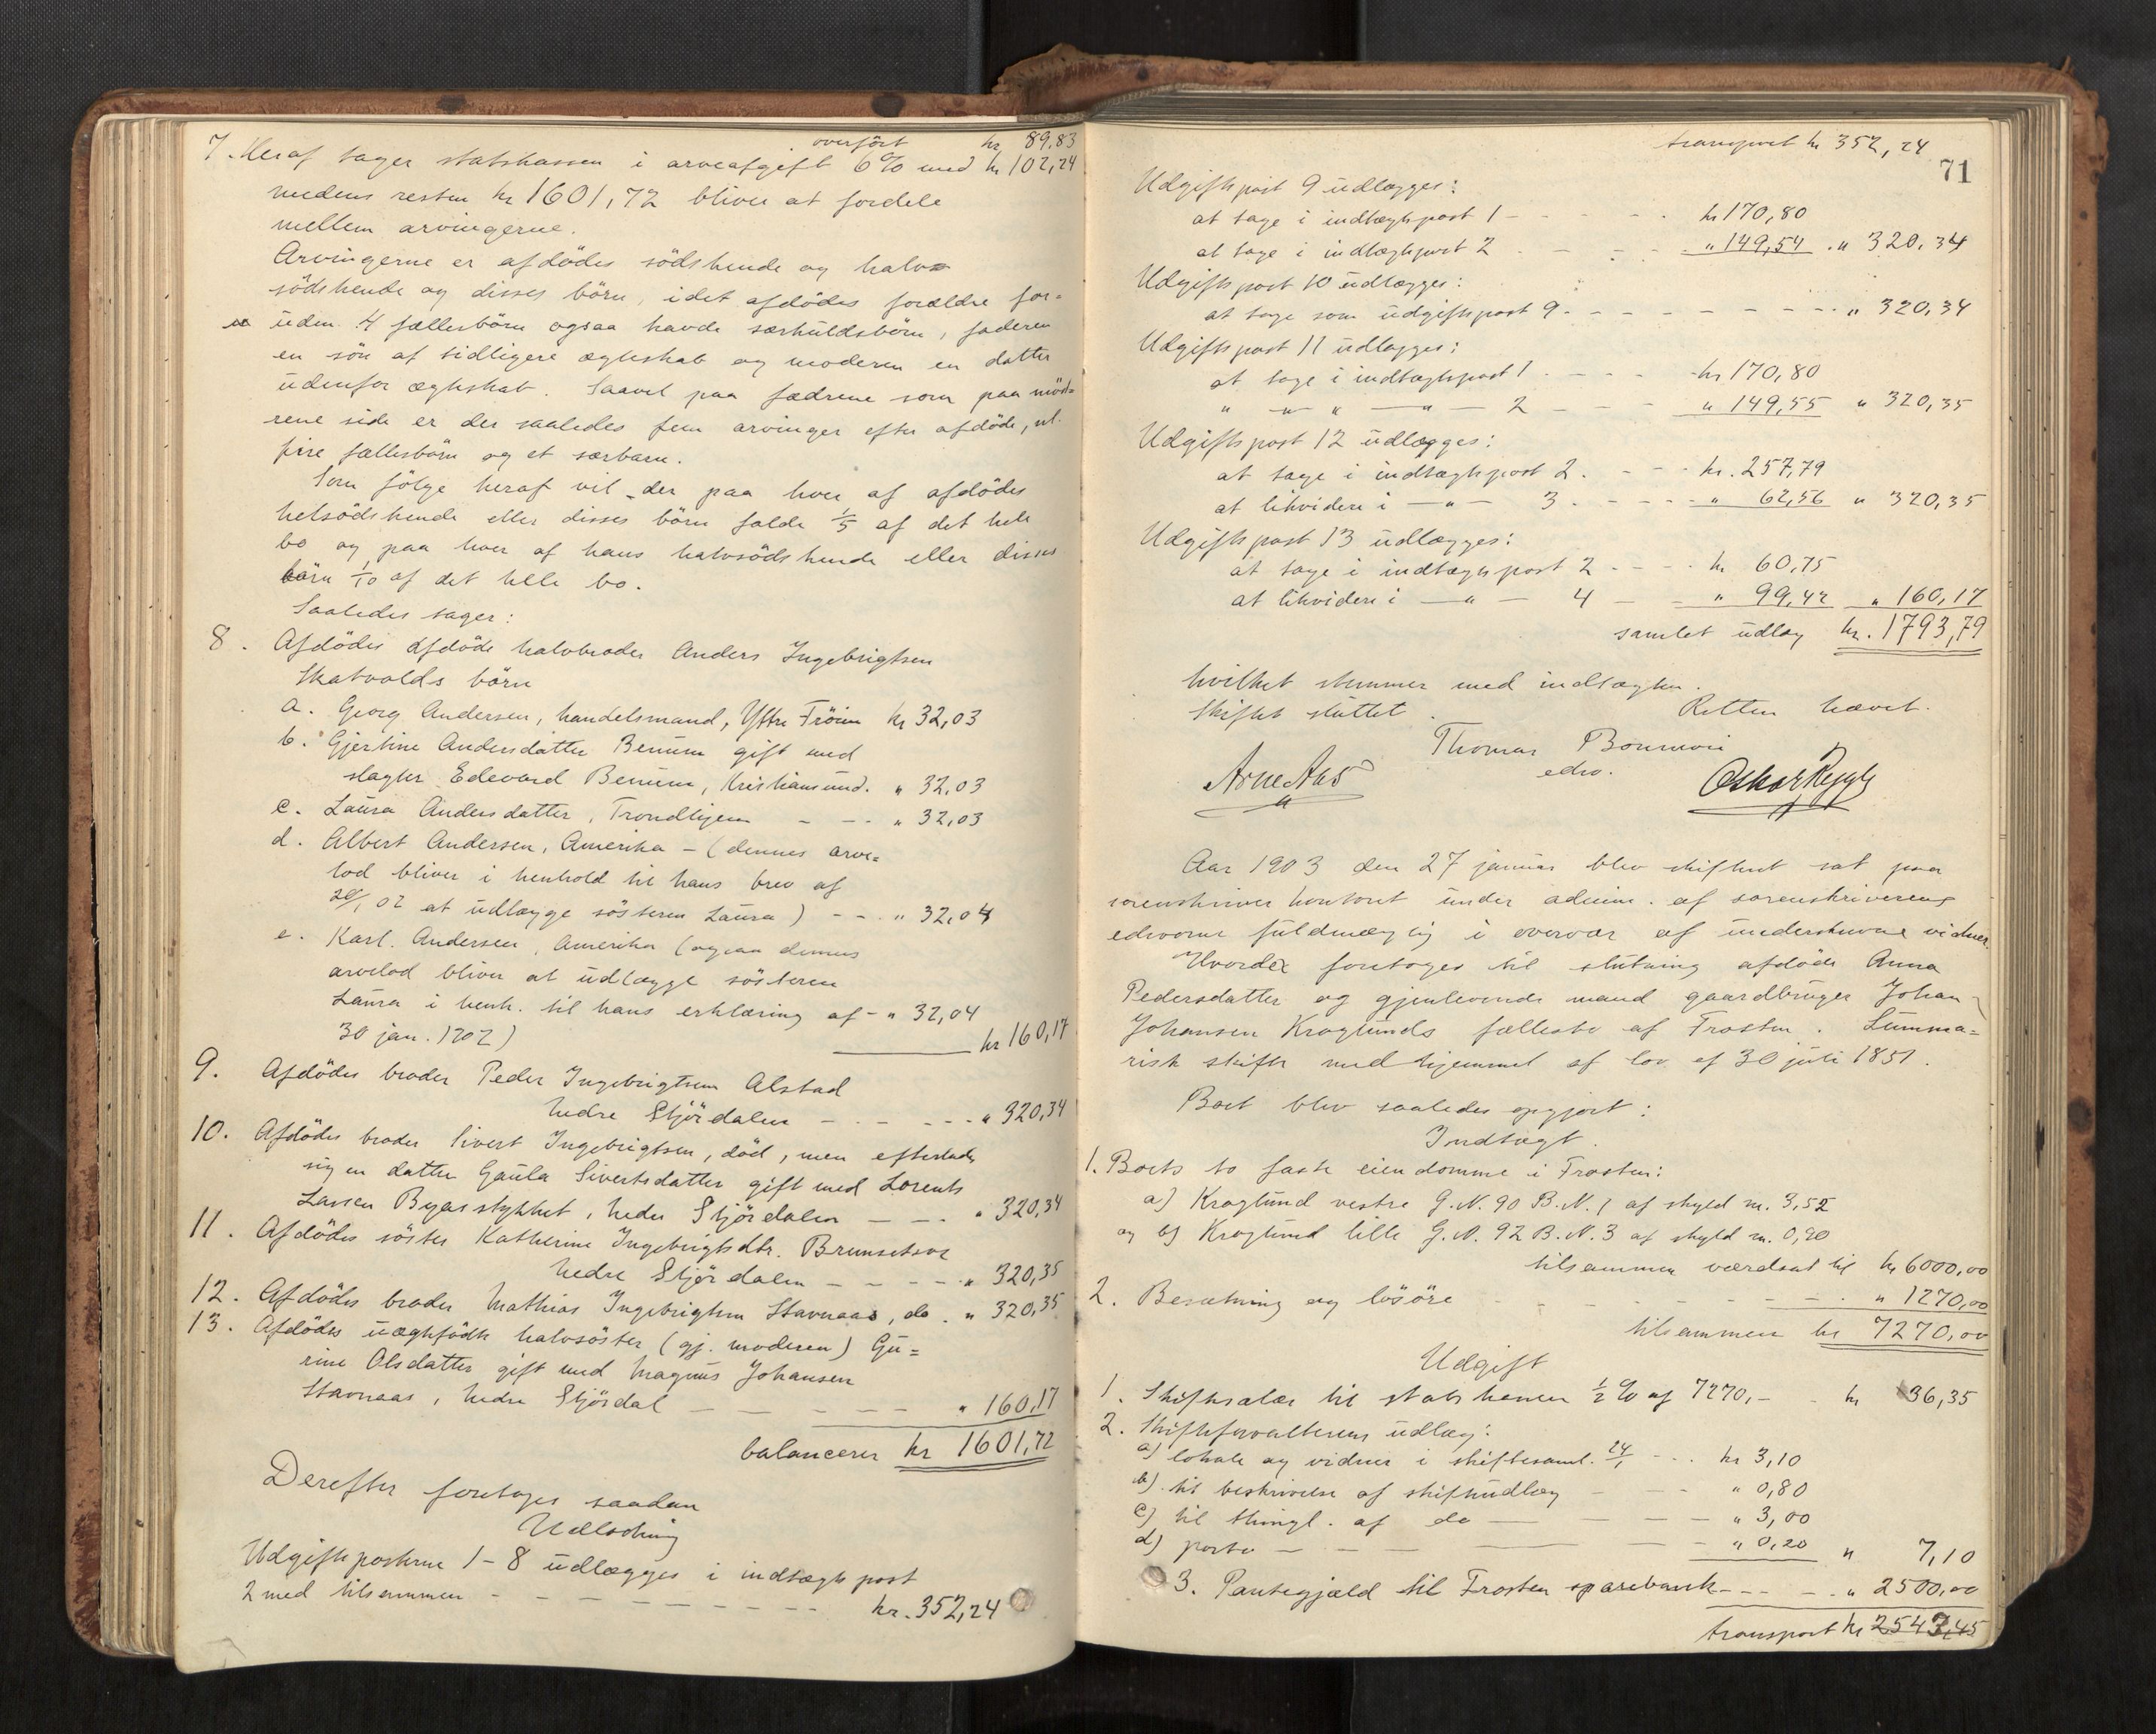 overført kr 89,83
7. Heraf tager statskassen i arveafgift 6% med kr 102,24
medens resten kr 1601,72 bliver at fordele
mellem arvingerne.
Arvingerne er afdødes södskende og halv=
södskende og disses börn, idet afdødes forældre for=
uden 4 fællesbörn ogsaa havde særkuldsbörn, faderen
en sön af tidligere ægteskab og moderen en datter
udenfor ægteskab. Saavel paa fædrene som paa möd=
rene side er der saaledes fem arvinger efter afdöde, nl.
fire fællesbörn og et særbarn.
Som fölge heraf vil der paa hver af afdödes
helsödskende eller disses börn falde 1/5 af det hele
bo og paa hver af hans halvsödskende eller disses
börn 1/10 af det hele bo.
Saaledes tager:
8. Afdödes afdöde halvbroder Anders Ingebrigtsen
Skatvolds börn
a. Georg Andersen, handelsmand, Yttre Fröien kr 32,03
b. Gjertine Andersdatter Benum gift med
slagter Edevard Benum, Kristiansund. " 32,03
c. Laura Andersdatter, Trondhjem - - - " 32,03
d. Albert Andersen, Amerika - (dennes arve=
lod bliver i henhold til hans brev af
20/1 02 at udlægge sösteren Laura) - - " 32,04
e. Karl. Andersen, Amerika (ogsaa dennes
arvelod bliver at udlægge sösteren
Laura i henh. til hans erklæring af - " 32,04
30 jan. 1902) kr 160,17
9. Afdödes broder Peder Ingebrigtsen Alstad
Nedre Stjördalen - - - - " 320,34
10. Afdödes broder Sivert Ingebrigtsen, död, men efterlader
sig en datter Gaula Sivertsdatter gift med Lorents
Larsen Byasstykket, Nedre Stjördalen - - - " 320,34
11. Afdödes söster Katherine Ingebrigtsdtr.
Nedre Stjördalen - - - - " 320,35
12. Afdödes broder Mathias Ingebrigtsen Stavnaas, do. " 320,35
13. Afdödes uægtefödte halvsöster (gj. moderen) Gu=
rine Olsdatter gift med Magnus Johansen
Stavnaas, Nedre Stjördal - - - - - " 160,17
balancerer kr 1601,72
Derefter foretoges saadan
Udlodning
Udgiftsposterne 1-8 udlægges i indtægtspost
2 med tilsammen - - - - - - - - - kr. 352,24
transport kr 352,24
71
Udgiftspost 9 udlægges:
at tage i indtægtspost 1 - - - - - kr 170,80
at tage i indtægtspost 2 - - - - " 149,54 . " 320,34
Udgiftspost 10 udlægges:
at tage som udgiftspost 9 - - - - - - - - " 320,34
Udgiftspost 11 udlægges:
at tage i indtægtspost 1 - - - - kr 170,80
" - " - " - " - 2 - - - " 149,55 " 320,35
Udgiftspost 12 udlægges:
at tage i indtægtspost 2. - - - kr. 257,79
at likvidere i - " - 3 - - - - " 62,56 " 320,35
Udgiftspost 13 udlægges:
at tage i indtægtspost 2 - - - - kr 60,75
at likvidere i - " - 4 - - " 99,42 " 160,17
samlet udlæg kr. 1793,79
hvilket stemmer med indtægten.
Skiftet sluttet. Retten hævet.
Thomas
edsv.
Arne Aas Oskar
Aar 1903 den 27 januar blev skifteret sat paa
sorenskriverkontoret under admin. af sorenskriverens
edsvorne fuldmægtig i overvær af underskrevne vidner.
Hvorda foretoges til slutning afdöde Anna
Pedersdatter og gjenlevende mand gaardbruger Johan
Johansen Kroglunds fællesbo af Frosten. Summa=
risk skifte med hjemmel af lov af 30 juli 1851.
Boet blev saaledes opgjort:
Indtægt.
1. Boets to faste eiendomme i Frosten:
a) Kroglund vestre G.N. 90 B.N. 1 af skyld m. 3,52
og b) Kroglund lille G.N. 92 B.N. 3 af skyld m. 0,20
tilsammen værdsat til kr 6000,00
2. Besætning og lösöre - - - - - - - " 1270,00
tilsammen kr 7270,00
Udgift
1. Skiftesalær til statskassen 1/2 % af 7270,- - kr 36,35
2. Skifteforvalterens udlæg:
a) lokale og vidner i skiftesaml. 24/1 - - - kr 3,10
b) til beskrivelse af skifteudlæg - - - " 0,80
c) til thingl. af do - - - - " 3,00
d) porto - - - - - - " 0,20 " 7,10
3. Pantegjæld til Frosten sparebank - - - - " 2500,00
transport kr 2543,45